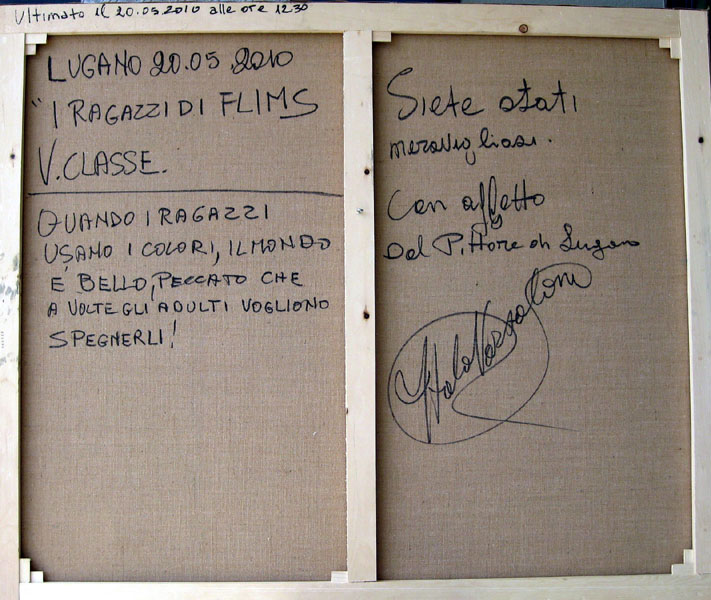 Ultimato il 20.05.2010 alle ore 12 30
LUGANO 20.05.2010
"I RAGAZZI DI FLIMS
V. CLASSE.
QUANDO I RAGAZZI
USANO I COLORI, IL MONDO
È BELLO, PECCATO CHE
A VOLTE GLI ADULTI VOGLIONO
SPEGNERLI!
Siete stati
meravigliosi.
Con affetto
Dal Pittore di Lugano
Italo